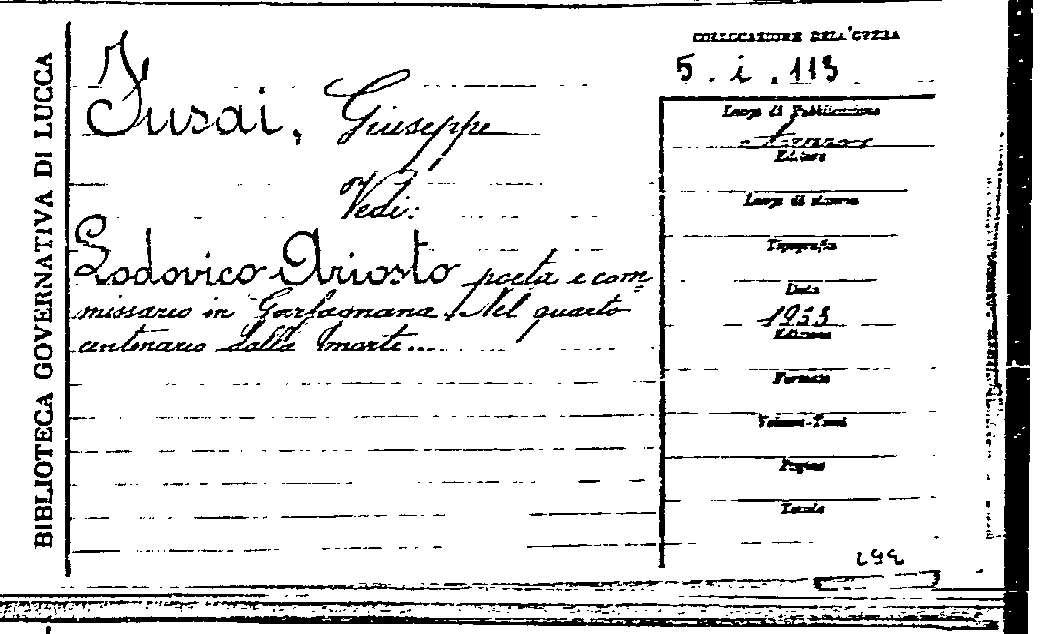 BIBLIOTECA GOVERNATIVA DI LUCCA
Fusai, Giuseppe
Vedi:
Lodovico Ariosto poeta e com=
missario in Garfagnana. Nel quarto
centenario dalla morte...
COLLOCAZIONE DELL'OPERA
5. i. 113
Luogo di Pubblicazione
Editore
Luogo di stampa
Tipografia
Data
1933
Edizione
Formato
Volumi-Tomi
Pagine
Tavole